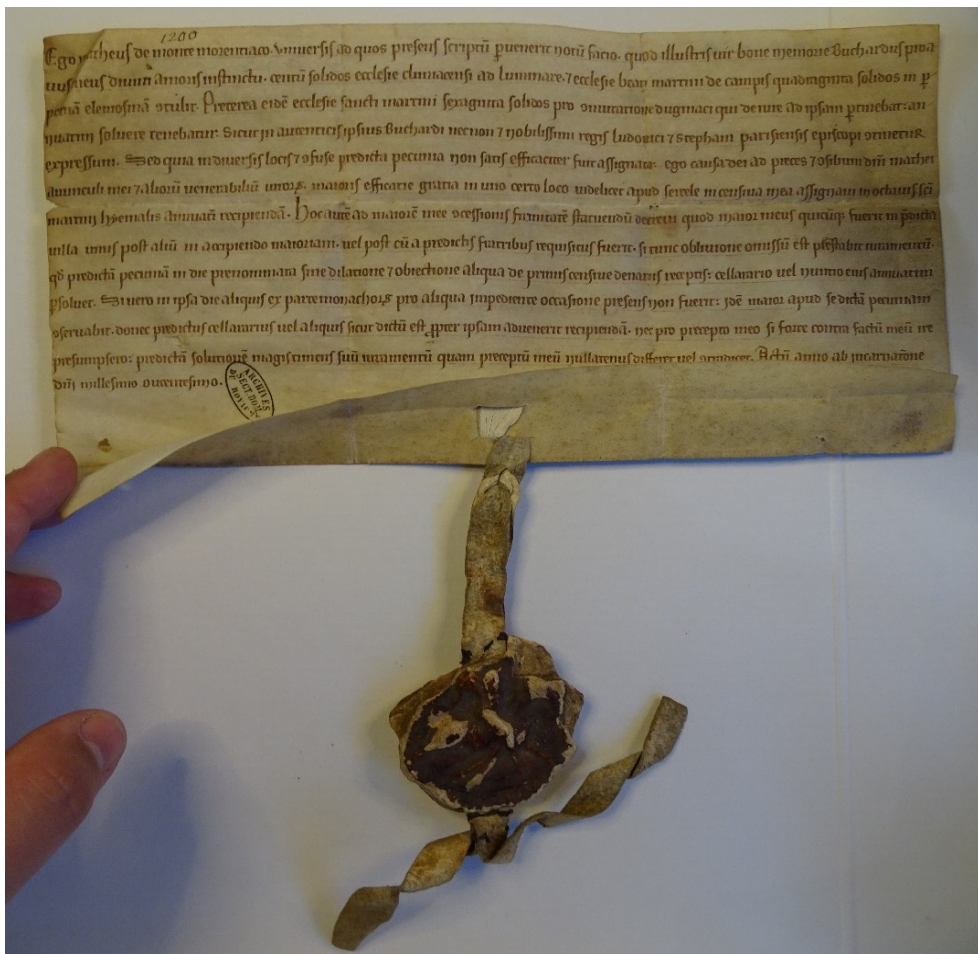 1200
Ego matheus de monte morentiaco. Vniuersis ad quos presens scriptū ꝑuenerit notū facio. quod illustris uir bone memorie Buchardus proa
uus meus diuini amoris instinctu. centū solidos ecclesie cluniacensi ad luminare. ⁊ ecclesie beati martini de campis quadraginta solidos in ꝑ
petuā elemosinā ꝯtulit. Preterea eidē ecclesie sancti martini sexaginta solidos pro ꝯmutatione dugniaci qui de iure ad ipsam ꝑtinebat: an
nuatim soluere tenebatur. Sicut in autenticis ipsius Buchardi necnon ⁊ nobilissimi regis ludouici ⁊ stephani parisiensis episcopi ꝯtinetur
expressum. Sed quia in diuersis locis ⁊ ꝯfuse predicta pecunia non satis efficaciter fuit assignata: ego causa dei ad preces ⁊ ꝯsilium dn̄i mathei
auunculi mei ⁊ aliorū uenerabiliū uiroꝝ. maioris efficatie gratia in uno certo loco uidelicet apud sercele in censiua mea assignaui in octauis sc̄i
martini hyemalis annuatī recipiendā. Hoc autē ad maiorē mee ꝯcessionis firmitatē statuendū decreui quod maior meus quicūqꝫ fuerit in p̄dicta
uilla unus post aliū in accipiendo maioriam. uel post cū a predictis fratribus requisitus fuerit. si tunc obliuione omissū est p̄stabit iuramentū.
qd̄ predictā pecuniā in die prenominata sine dilatione ⁊ obiectione aliqua de primis censiue denariis receptis: cellarario uel nuntio eius annuatim
ꝑsoluet. Si uero in ipsa die aliquis ex parte monachoꝝ pro aliqua impediente occasione presens non fuerit: idē maior apud se dictā pecuniam
ꝯseruabit. donec predictus cellararius uel aliquis sicut dictū est ꝓpter ipsam aduenerit recipiendā. nec pro precepto meo si forte contra factū meū ire
presumpsero: predictā solutionē magis timens suū iuramentū quam preceptū meū nullatenus differet uel ꝯtradicet. Actū anno ab incarnatōne
dn̄i millesimo ducentesimo.
ARCHIVES
SECT. DOM.